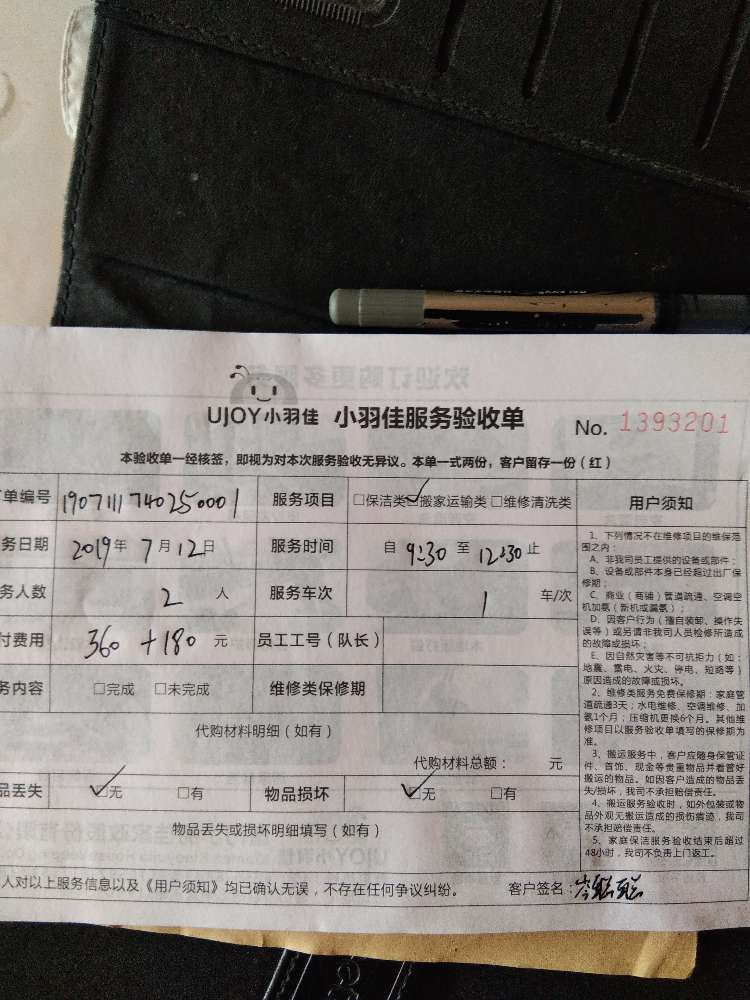 UJOY小羽佳 小羽佳服务验收单 No. 1393201
本验收单一经核签，即视为对本次服务验收无异议。本单一式两份，客户留存一份（红）
单编号 1907111740250001 服务项目 □保洁类 ☑搬家运输类 □维修清洗类 用户须知
务日期 2019年 7月12日 服务时间 自 9:30 至 12:30 止
务人数 2 人 服务车次 1 车/次
付费用 360+180 元 员工工号（队长）
务内容 □完成 □未完成 维修类保修期
代购材料明细（如有）
代购材料总额： 元
品丢失 ☑无 □有 物品损坏 ☑无 □有
物品丢失或损坏明细填写（如有）
人对以上服务信息以及《用户须知》均已确认无误，不存在任何争议纠纷。 客户签名：
1、下列情况不在维修项目的维保范
围之内：
A、非我司员工提供的设备或部件；
B、设备或部件本身已经超过出厂保
修期；
C、商业（商铺）管道疏通、空调空
机加氨（新机或漏氨）；
D、因客户行为（擅自装卸、操作失
误等）或另请非我司人员检修所造成
的故障或损坏；
E、因自然灾害等不可抗拒力（如：
地震、雷电、火灾、停电、短路等）
原因造成的故障或损坏。
2、维修类服务免费保修期：家庭管
道疏通3天；水电维修、空调维修、加
氨1个月；压缩机更换6个月。其他维
修项目以服务验收单填写的保修期为
准。
3、搬运服务中，客户应随身保管证
件、首饰、现金等贵重物品并看管好
搬运的物品。如因客户造成的物品丢
失/损坏，我司不承担赔偿责任。
4、搬运服务验收时，如外包装或物
品外观无搬运造成的损伤痕迹，我司
不承担赔偿责任。
5、家庭保洁服务验收结束后超过
48小时，我司不负责上门返工。